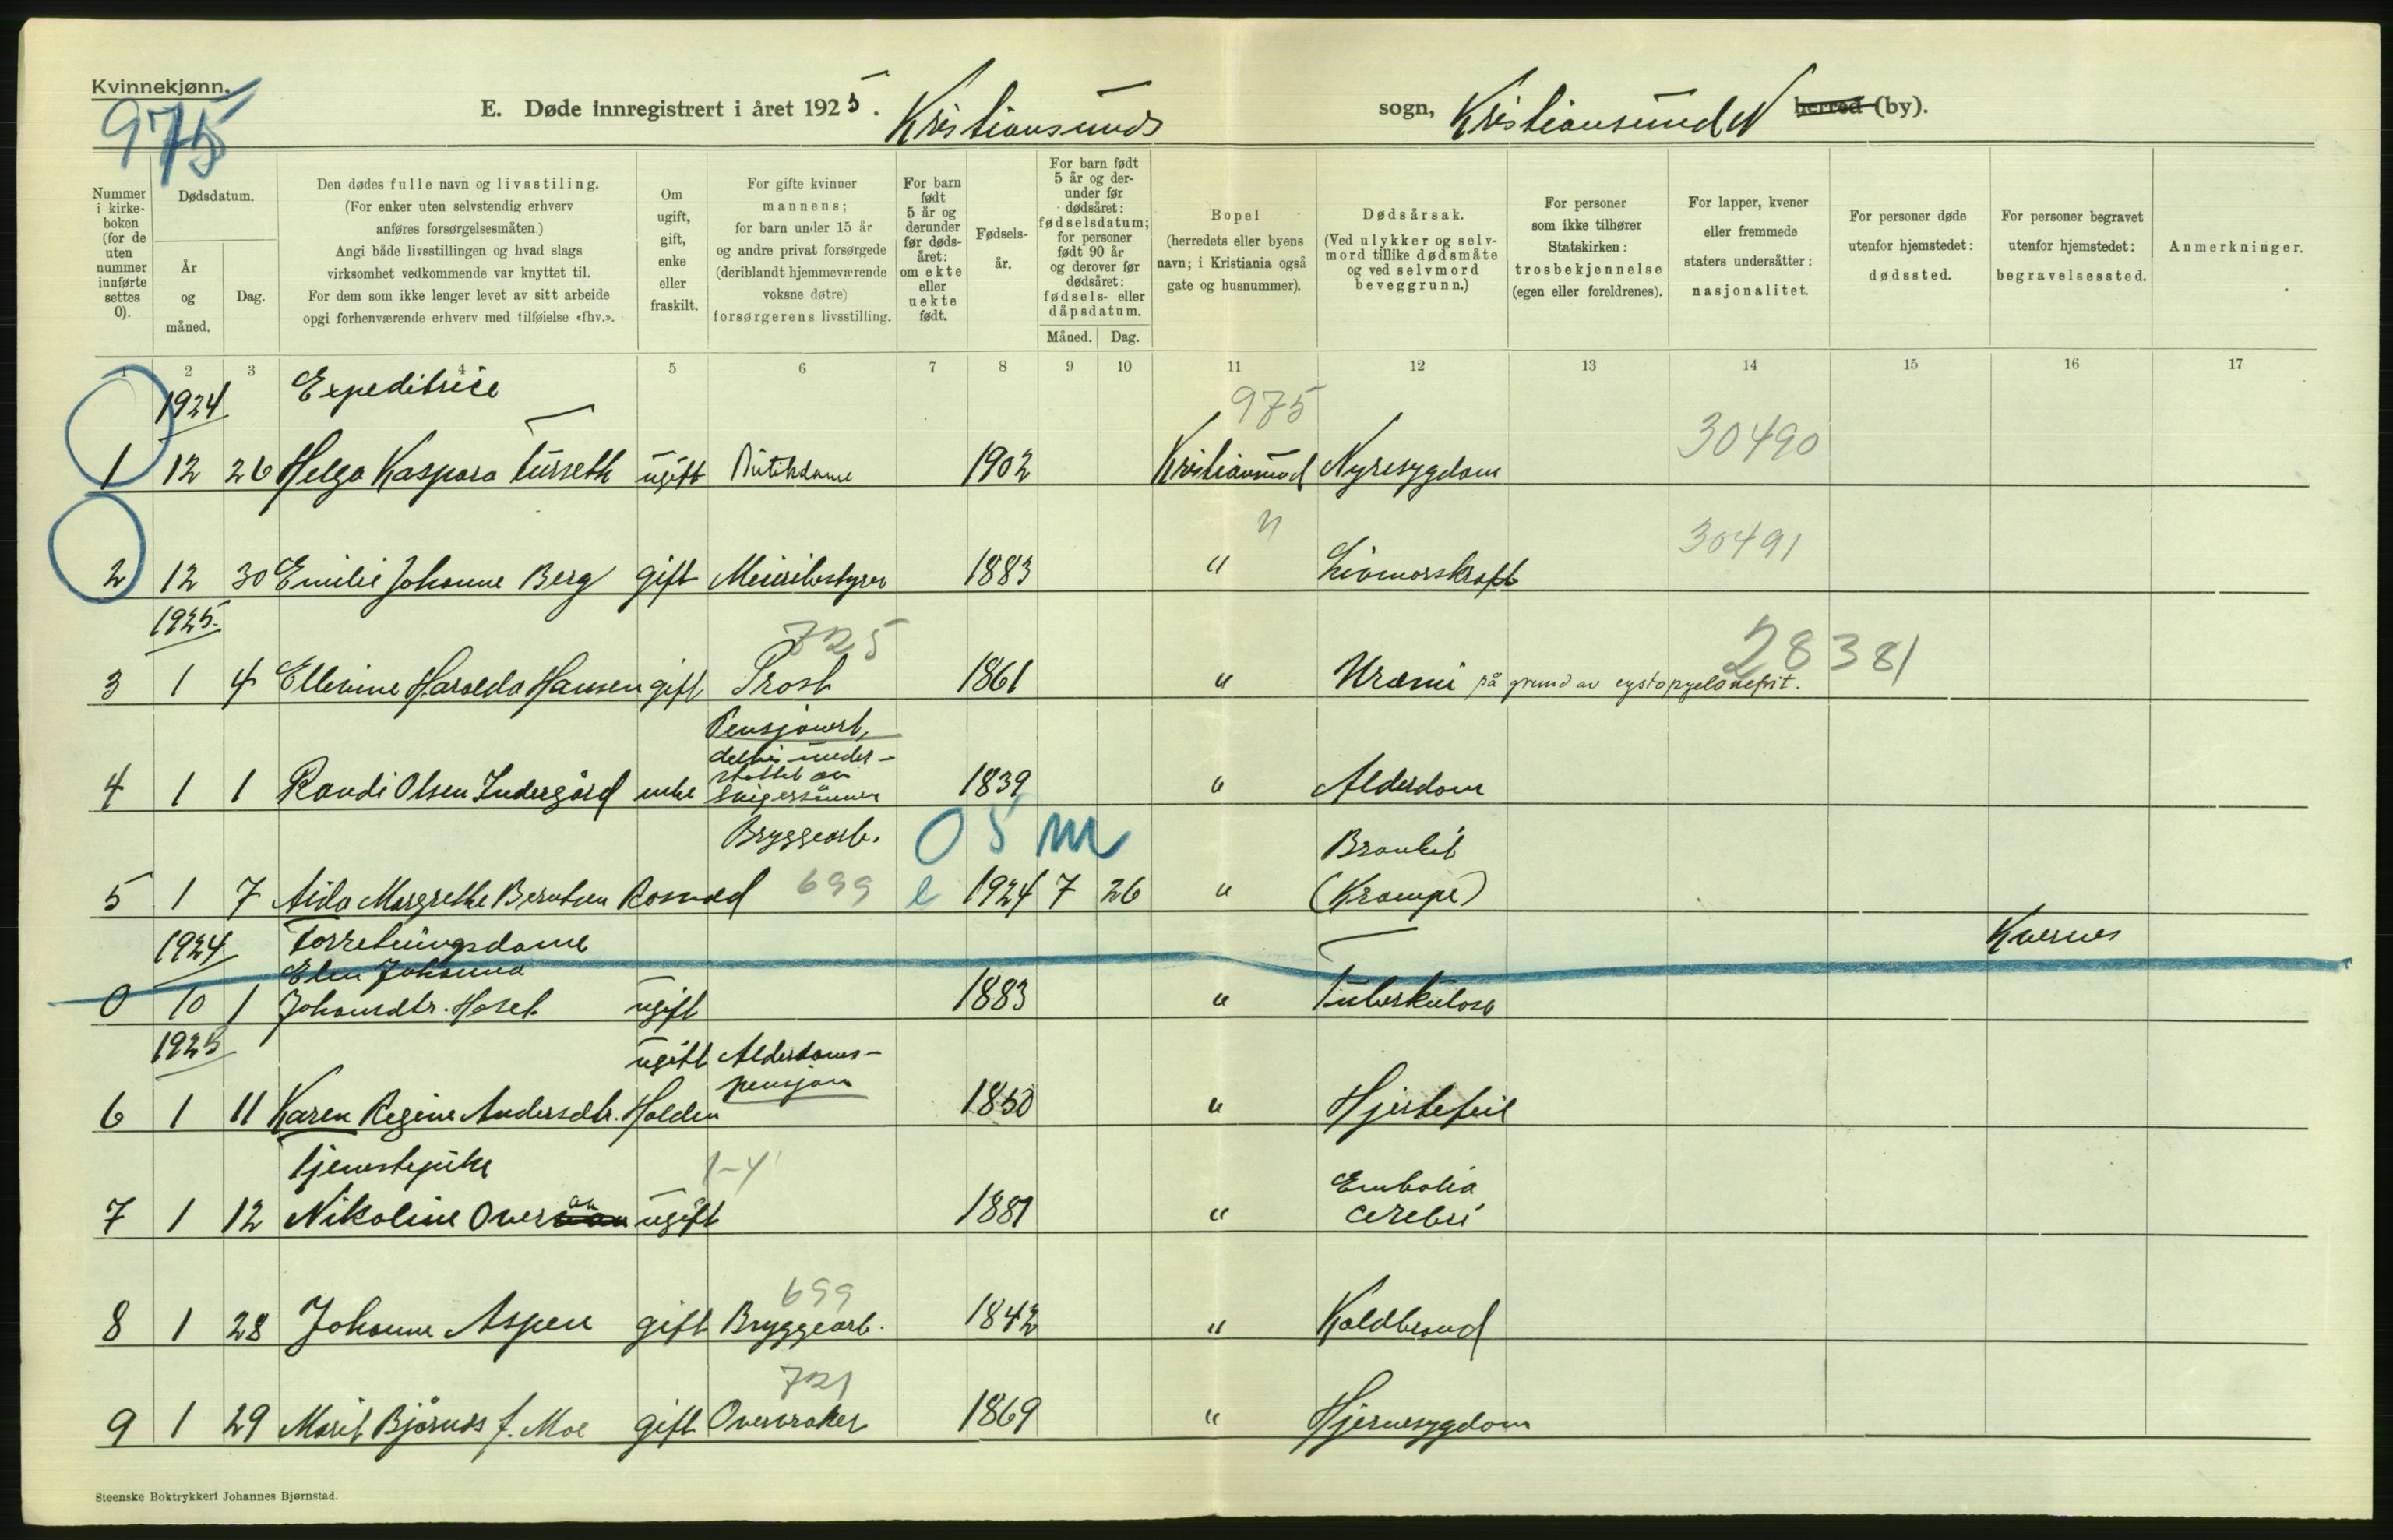 Kvinnekjønn.
975
E. Døde innregistrert i året 1925. Kristiansunds sogn, Kristiansund N herred (by).
Nummer i kirkeboken (for de uten nummer innførte settes 0).
Dødsdatum.
År og måned.
Dag.
Den dødes fulle navn og livsstiling.
(For enker uten selvstendig erhverv
anføres forsørgelsesmåten.)
Angi både livsstillingen og hvad slags
virksomhet vedkommende var knyttet til.
For dem som ikke lenger levet av sitt arbeide
opgi forhenværende erhverv med tilføielse «fhv.».
Om ugift, gift, enke eller fraskilt.
For gifte kvinner
mannens;
for barn under 15 år
og andre privat forsørgede
(deriblandt hjemmeværende
voksne døtre)
forsørgerens livsstilling.
For barn født 5 år og derunder før dødsåret: om ekte eller uekte født.
Fødselsår.
For barn født 5 år og derunder før dødsåret: fødselsdatum; for personer født 90 år og derover før dødsåret: fødsels- eller dåpsdatum.
Måned. Dag.
Bopel
(herredets eller byens
navn; i Kristiania også
gate og husnummer).
Dødsårsak.
(Ved ulykker og selvmord tillike dødsmåte
og ved selvmord
beveggrunn.)
For personer
som ikke tilhører
Statskirken:
trosbekjennelse
(egen eller foreldrenes).
For lapper, kvener
eller fremmede
staters undersåtter:
nasjonalitet.
For personer døde
utenfor hjemstedet:
dødssted.
For personer begravet
utenfor hjemstedet:
begravelsessted.
Anmerkninger.
1 2 3 4 5 6 7 8 9 10 11 12 13 14 15 16 17
1924 Expeditrice 975 30490
1 12 26 Helga Kaspara Tusseth ugift Butikdame 1902 Kristiansund Nyresygdom
" 30491
2 12 30 Emilie Johanne Berg gift Meieribestyrer 1883 "
1925. 725 28381
3 1 4 Ellevine Haralda Hansen gift Prost 1861 " Uræmi på grund av cystopyelonefrit.
Pensjonert,
delvis under-
støttet av
4 1 1 Randi Olsen Indergård enke svigersønnen 1839 " Alderdom
Bryggearb. 0 5 m Bronkit
5 1 7 Aida Margrethe Berntsen Rosvold 699 e 1924 7 26 " (Krampe)
1924 Forretningsdame Kvernes
Elen Johanna
0 10 1 Johansdtr. Hoset ugift 1883 " Tuberkulose
1925 ugift Alderdoms-
pensjon
6 1 11 Karen Regine Andersdtr. Holden 1850 " Hjertefeil
Tjenestepike 1-4 Embolia
7 1 12 Nikoline Oversan ugift 1881 " cerebri
699
8 1 28 Johanne Aspen gift Bryggearb. 1842 " Koldbrand
721
9 1 29 Marit Bjørnås f. Moe gift Overvraker 1869 " Hjernesygdom
Steenske Boktrykkeri Johannes Bjørnstad.